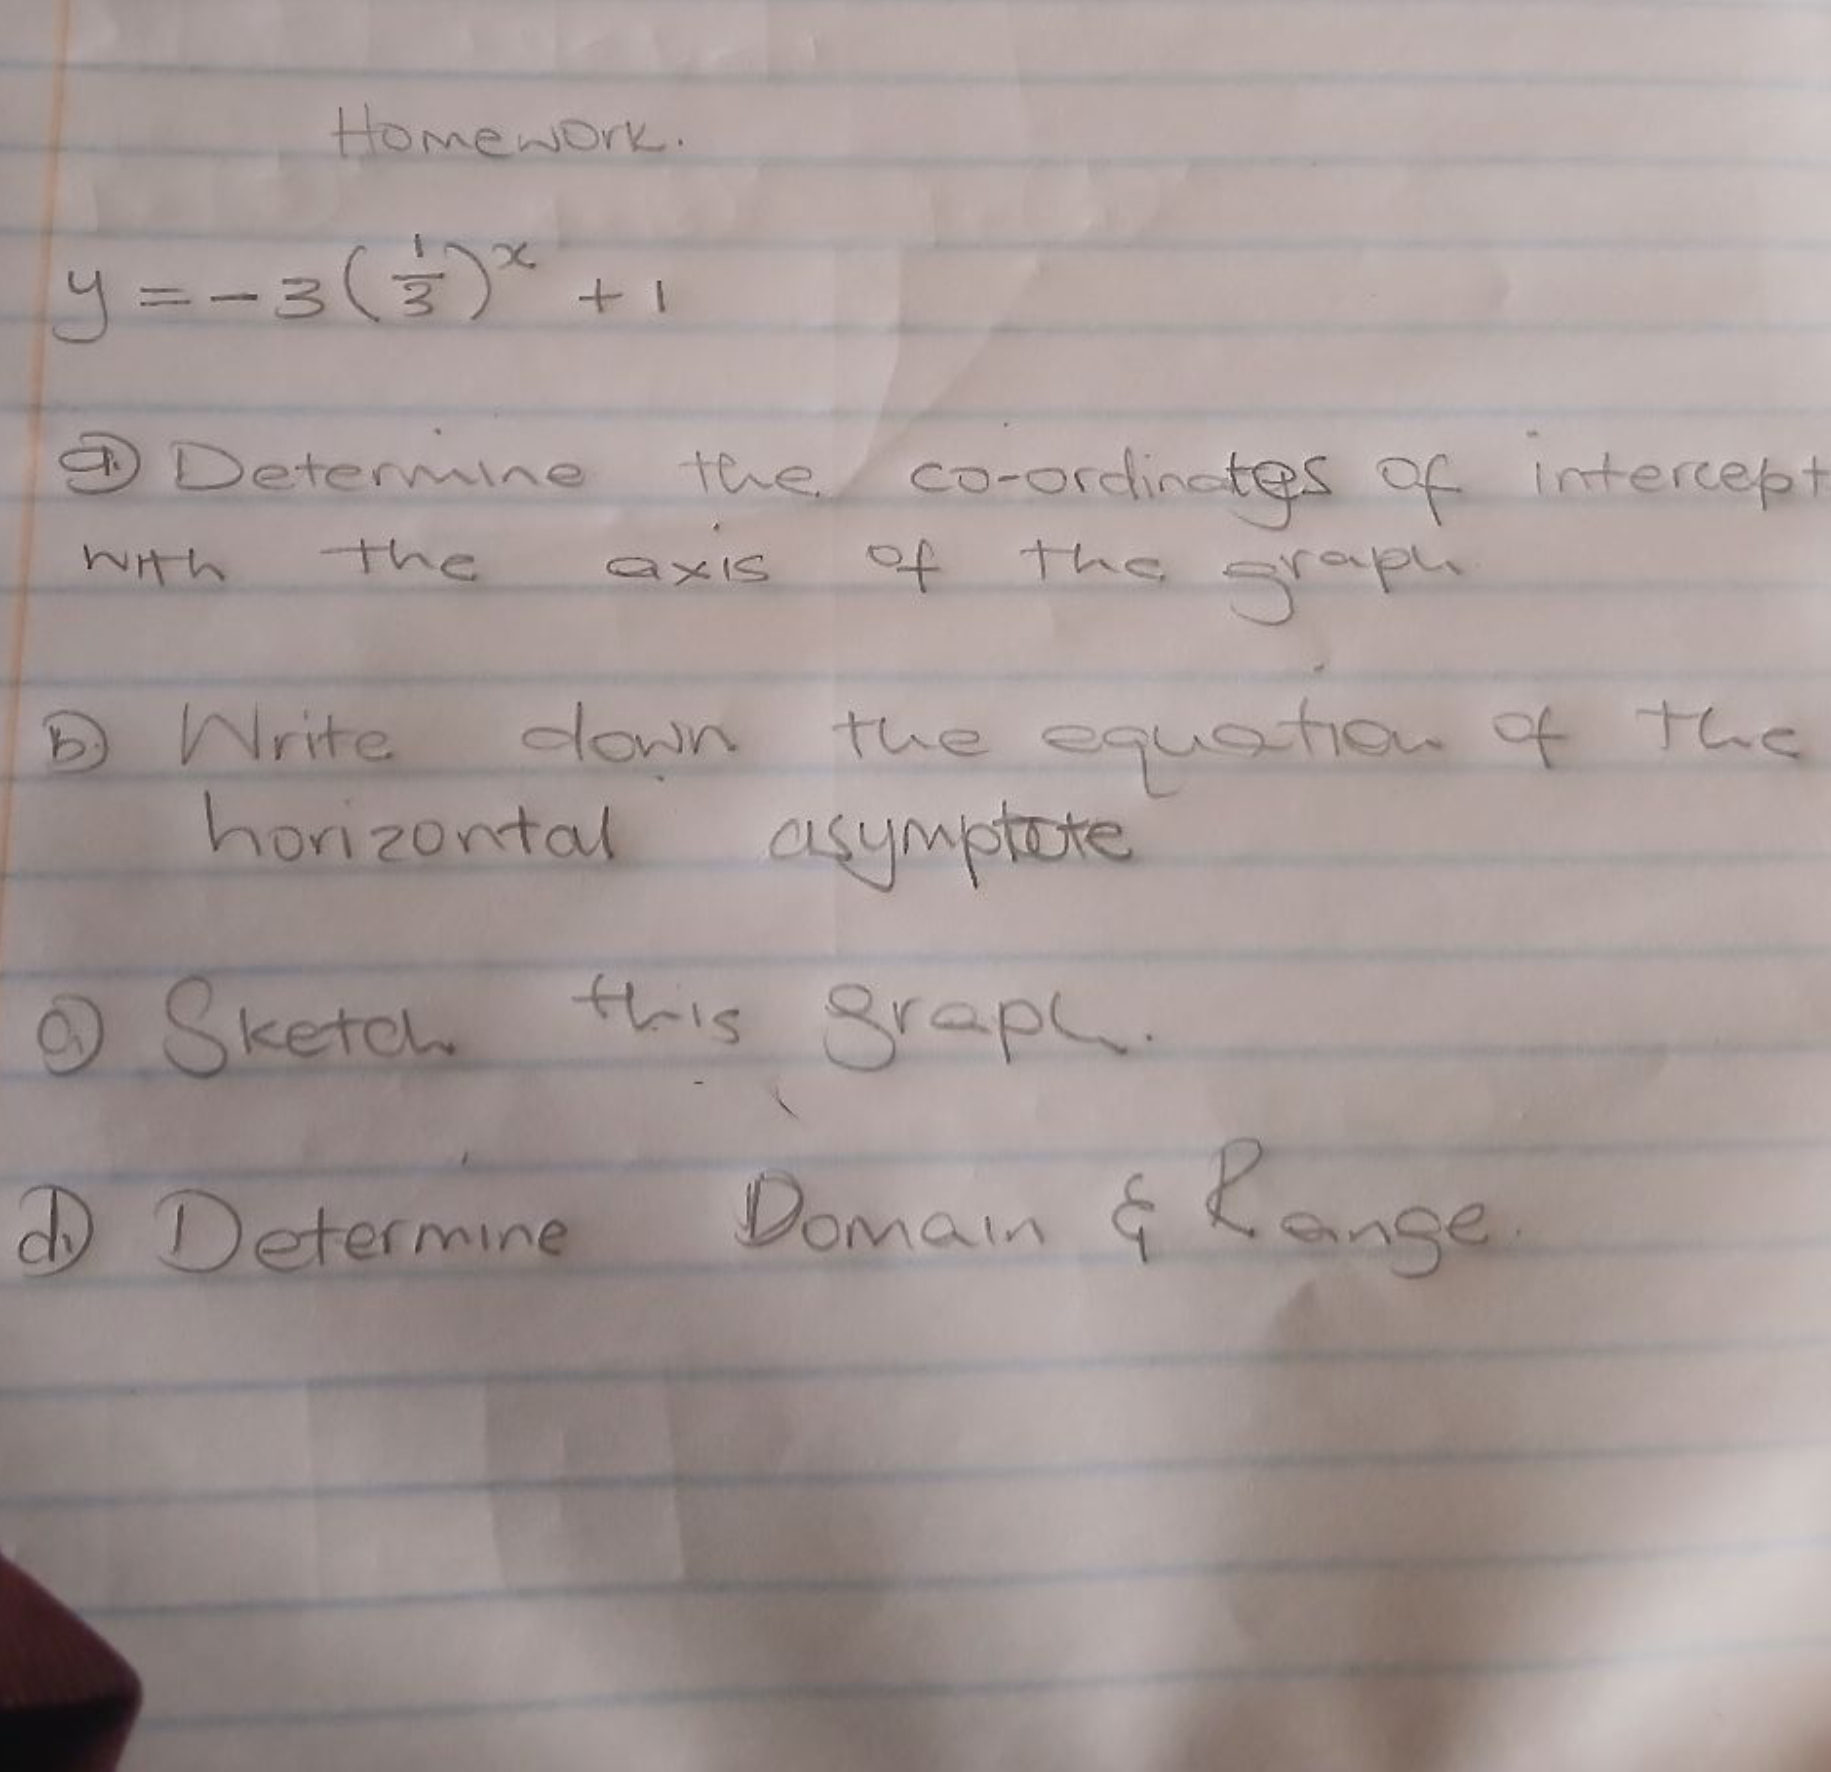 Homework.
y = -3(1/3)^x + 1
a) Determine the co-ordinates of intercept
with the axis of the graph
b) Write down the equation of the
horizontal asymptote
c) Sketch this graph.
d) Determine Domain & Range.